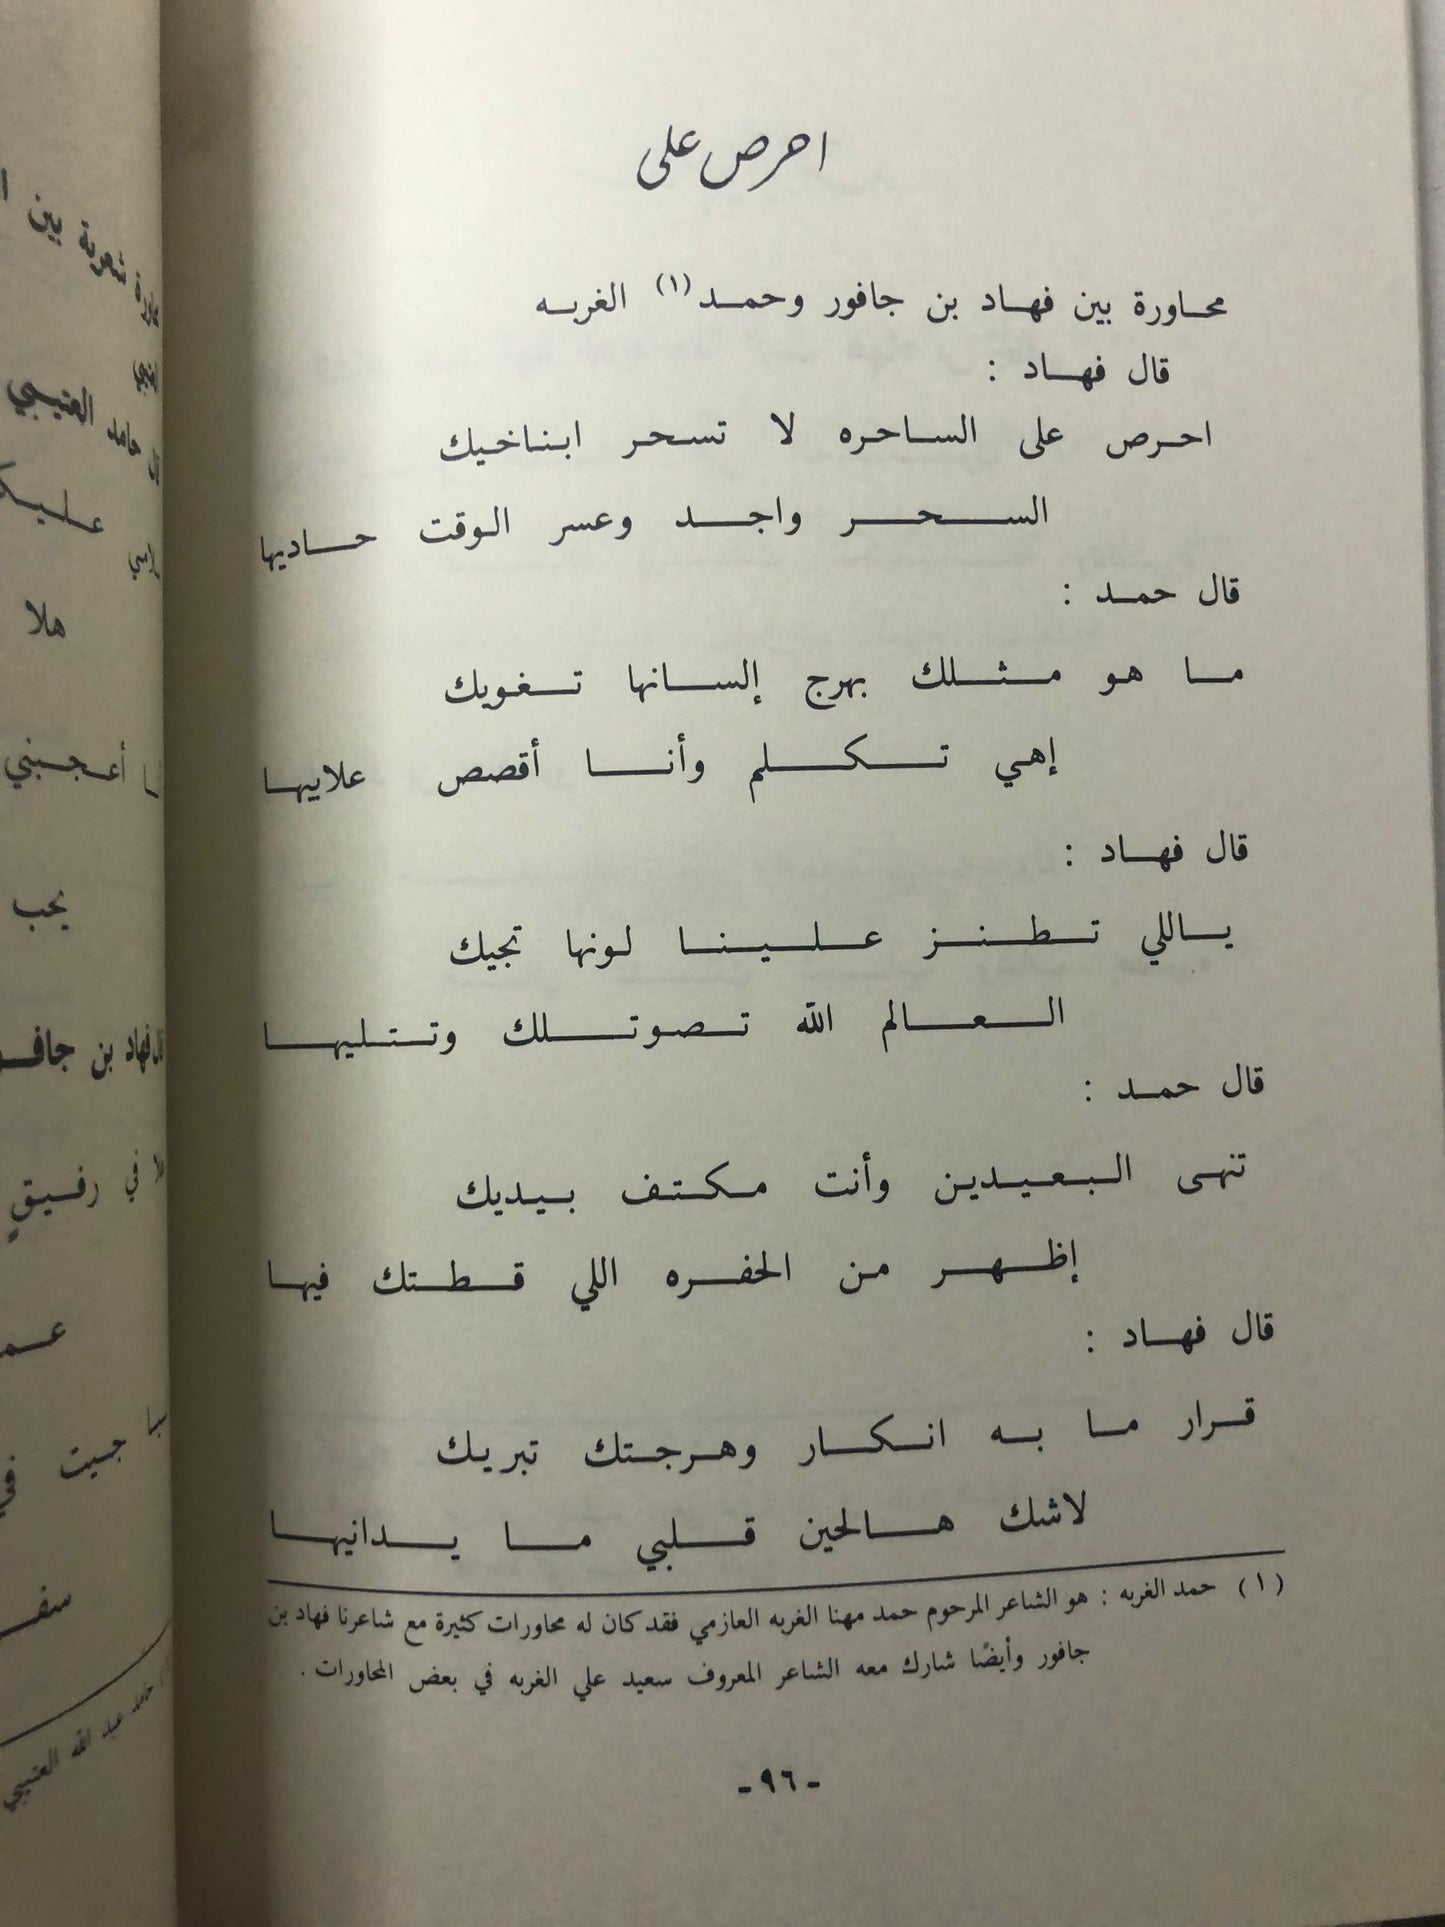 احرص على
محاورة بين فهاد بن جافور وحمد(١) الغربه
قال فهاد :
احرص على الساحره لا تسحر ابناخيك
السحر واجد وعسر الوقت حاديها
قال حمد :
ما هو مثلك بهرج إلسانها تغويك
إهي تكلم وأنا أقصص علابيها
قال فهاد :
ياللي تطنز علينا لونها تجيك
العالم الله تصوتلك وتتليها
قال حمد :
تنهى البعيدين وأنت مكتف بيديك
إظهر من الحفره اللي قطتك فيها
قال فهاد :
قرار ما به انكار وهرجتك تبريك
لاشك هالحين قلبي ما يدانيها
(١) حمد الغربه : هو الشاعر المرحوم حمد مهنا الغربه العازمي فقد كان له محاورات كثيرة مع شاعرنا فهاد بن
جافور وأيضًا شارك معه الشاعر المعروف سعيد علي الغربه في بعض المحاورات .
-٩٦-
بين
العتيبي
هلا
أعجبني
يحب
فهاد بن
في رفيقٍ
جيت
حامد عبد الله العتيبي